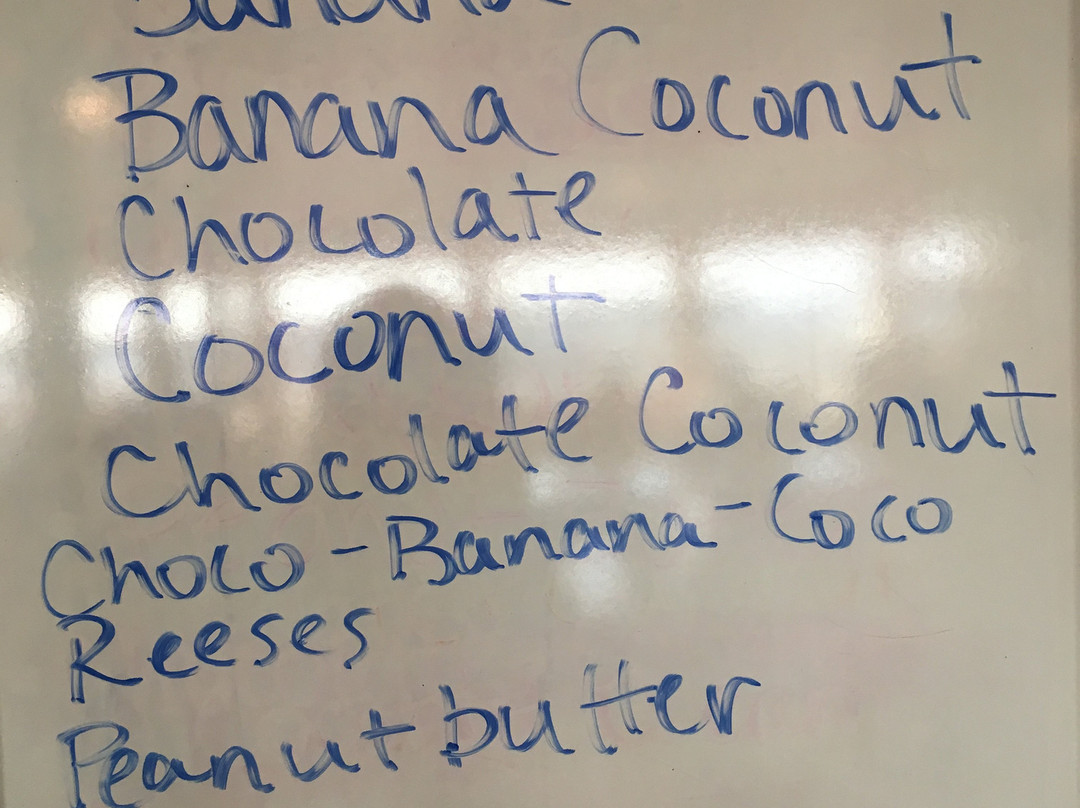 Banana Coconut
Chocolate
Coconut
Chocolate Coconut
Choco-Banana-Coco
Reeses
Peanut butter